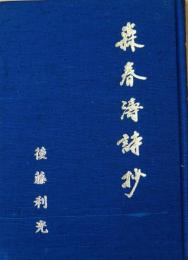 森春濤詩抄
後藤利光